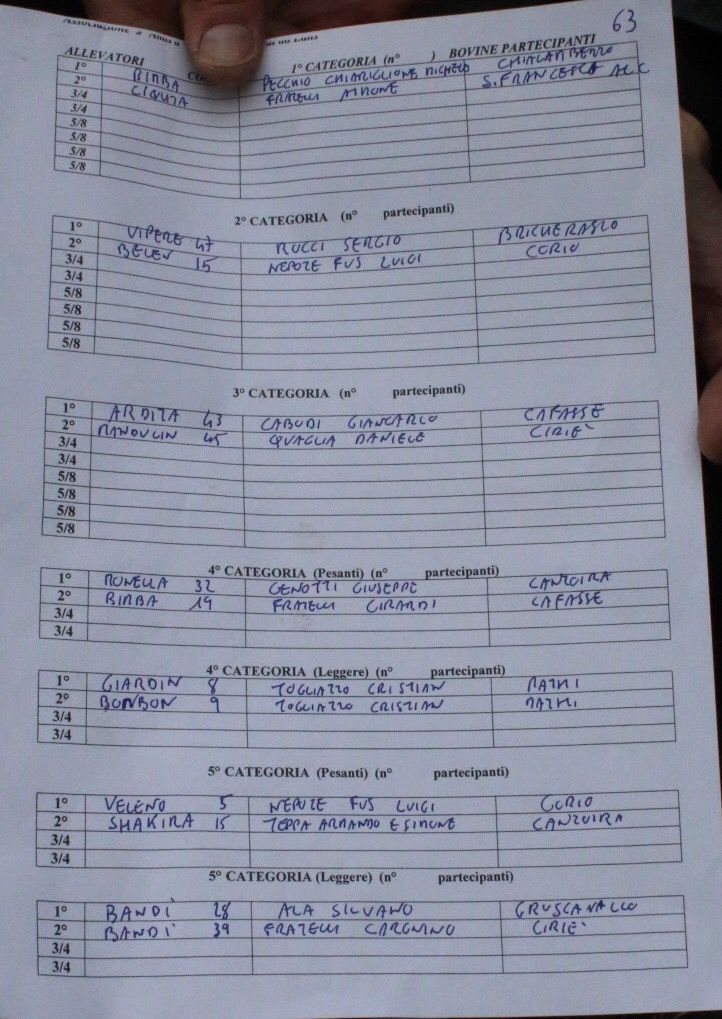 63
ALLEVATORI 1° CATEGORIA (n° ) BOVINE PARTECIPANTI
1° BIRBA PECCHIO CHIARIGLIONE MICHELE CHIALAMBERTO
2° CIQUITA FRATELLI AIMONE S. FRANCESCO AL C.
3/4
3/4
5/8
5/8
5/8
2° CATEGORIA (n° partecipanti)
1° VIPERE 47 RUCCI SERGIO BRICHERASIO
2° BELEN 15 NEPOTE FUS LUIGI CORIO
3/4
3/4
5/8
5/8
5/8
5/8
3° CATEGORIA (n° partecipanti)
1° ARDITA 43 CABODI GIANCARLO CAFASSE
2° 45 QUAGLIA DANIELE CIRIE'
3/4
3/4
5/8
5/8
5/8
5/8
4° CATEGORIA (Pesanti) (n° partecipanti)
1° MONELLA 32 GENOTTI GIUSEPPE CANTOIRA
2° BIRBA 19 FRATELLI GIRARDI CAFASSE
3/4
3/4
4° CATEGORIA (Leggere) (n° partecipanti)
1° GIARDIN 8 TOGLIATTO CRISTIAN MATHI
2° BONBON 9 TOGLIATTO CRISTIAN MATHI
3/4
3/4
5° CATEGORIA (Pesanti) (n° partecipanti)
1° VELENO 5 NEPOTE FUS LUIGI CORIO
2° SHAKIRA 15 TEPPA ARMANDO E SIMONE CANTOIRA
3/4
3/4
5° CATEGORIA (Leggere) (n° partecipanti)
1° BANDI' 28 ALA SILVANO GROSCAVALLO
2° BANDI' 39 FRATELLI CARGNINO CIRIE'
3/4
3/4